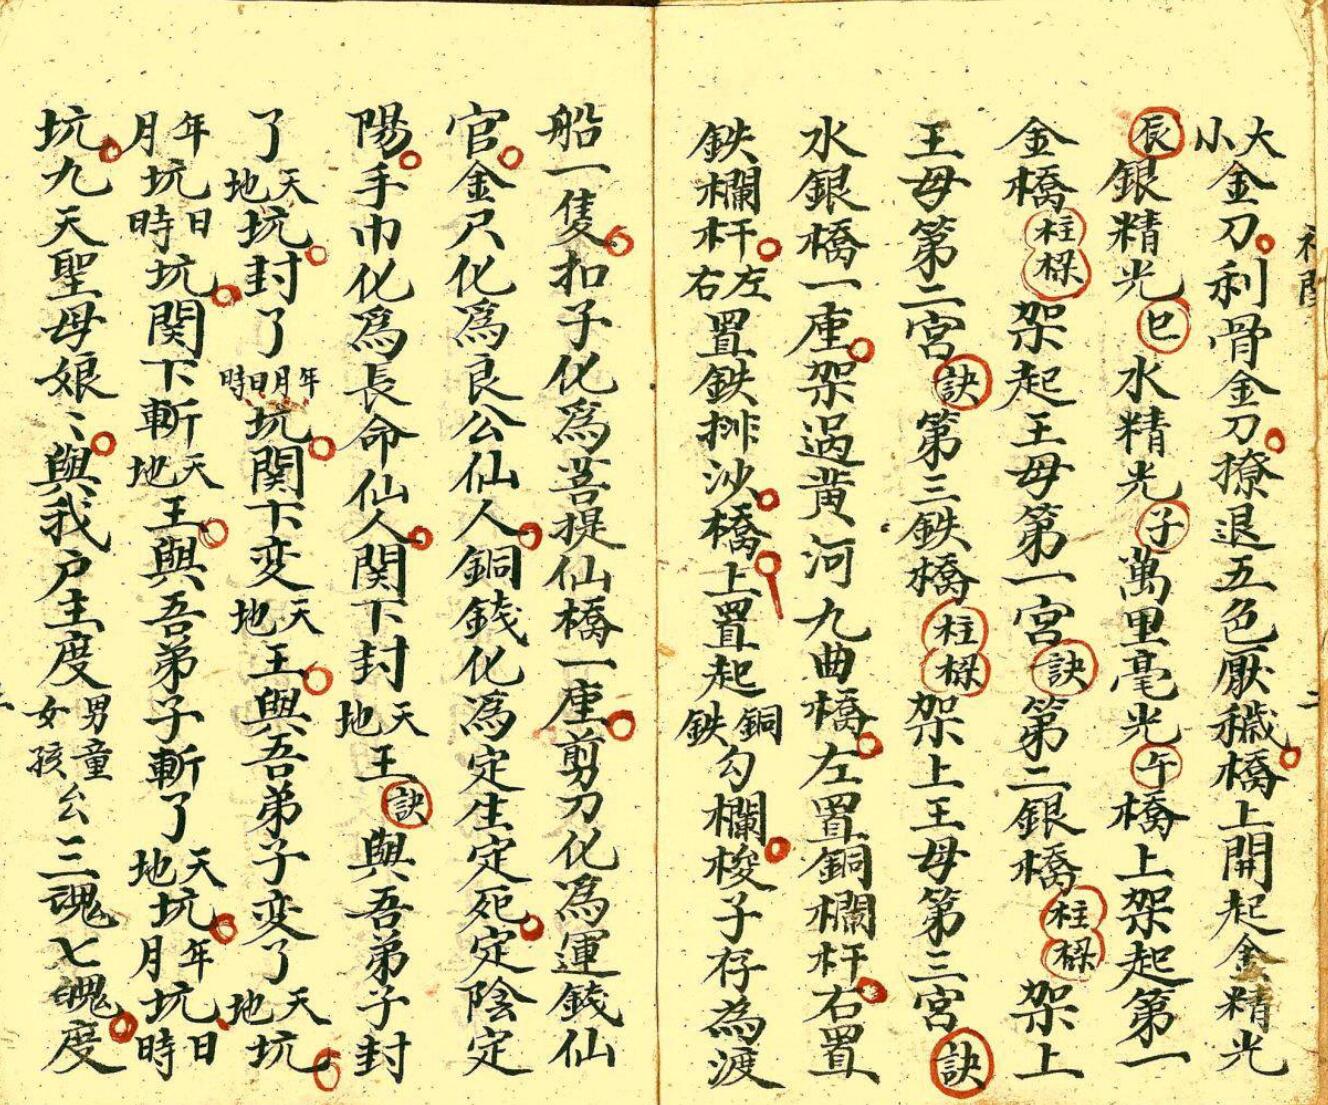 大小金刀利骨金刀撩退五色厭穢橋上開起金精光
辰銀精光巳水精光子萬里毫光午橋上架起第一
金橋柱樑架起王母第一宮訣第二銀橋柱樑架上
王母第二宮訣第三鉄橋柱樑架上王母第三宮訣
水銀橋一座架過黄河九曲橋左置銅欄杆右置
鉄欄杆左右置鉄排沙橋上置起銅鉄勾欄梭子存為渡
船一隻扣子化爲菩提仙橋一座剪刀化爲運錢仙
官金尺化爲良公仙人銅錢化爲定生定死定陰定
陽手巾化爲長命仙人関下封天地王訣與吾弟子封
了天地坑封了年月日時坑関下变天地王與吾弟子变了天地坑
年月坑日時坑関下斬天地王與吾弟子斬了天地坑年月坑日時
坑九天聖母娘〻與我户主度男童女孩厶三魂七魄度